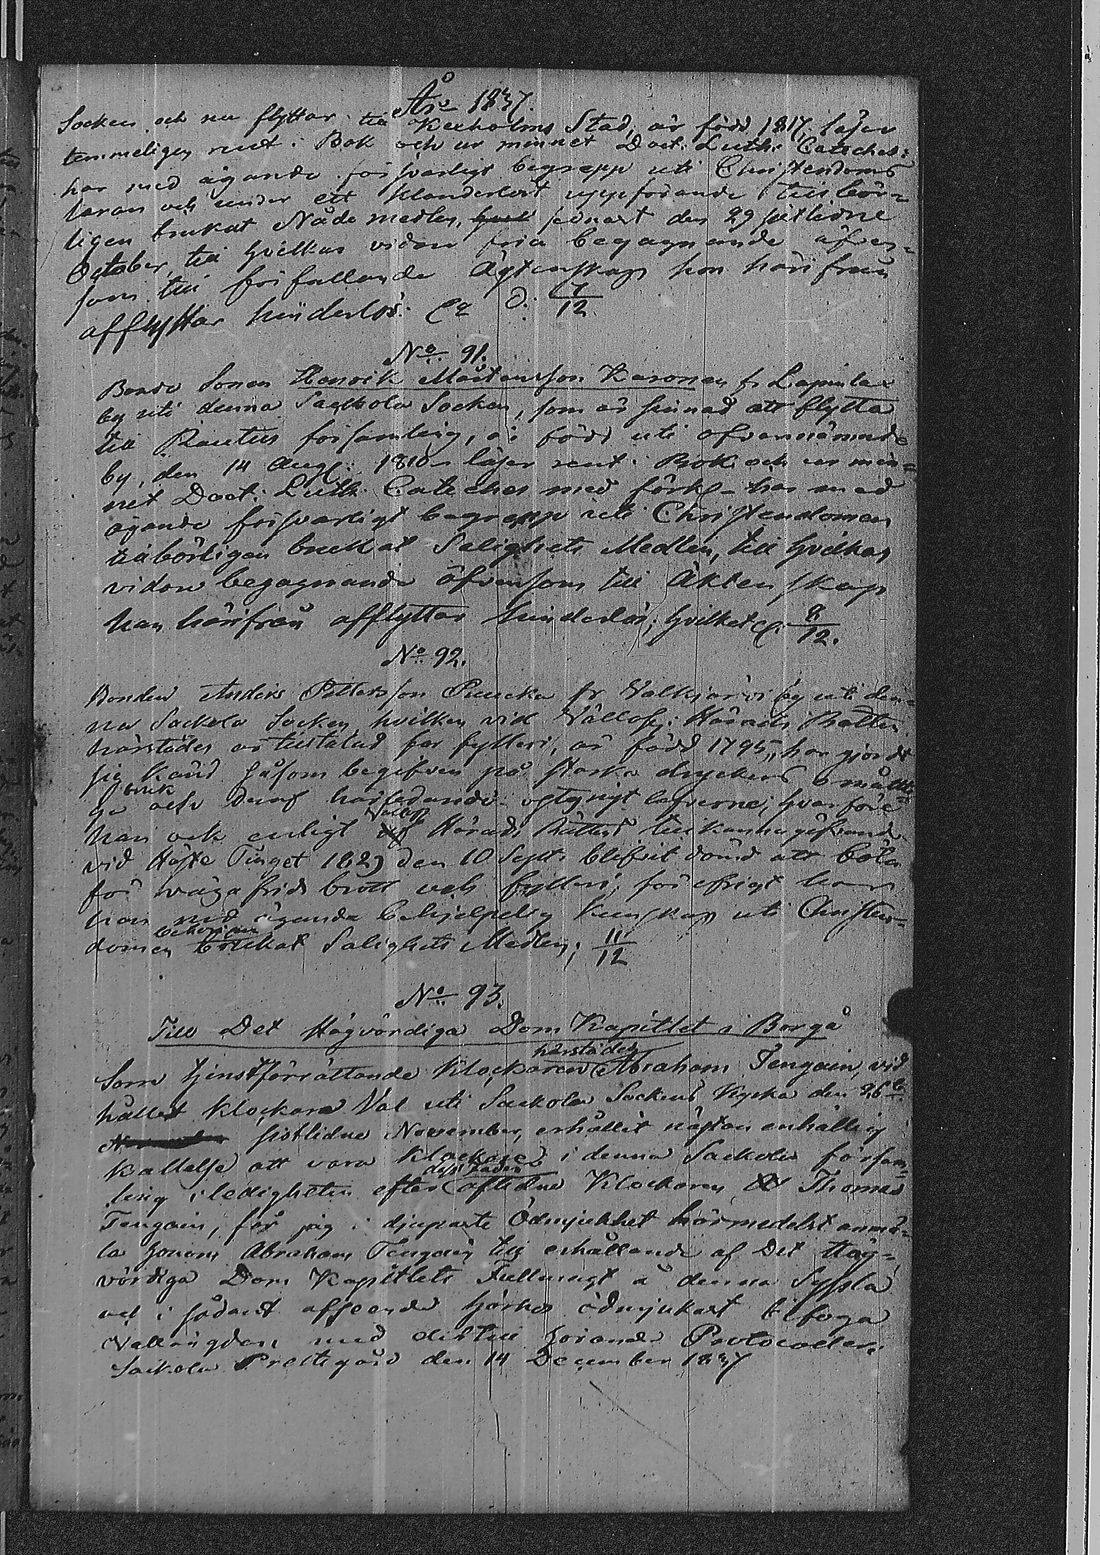 Åro 1837.
Socken och nu flyttar till Kexholms Stad, är född 1817, läser
temmeligen rent i Bok och ur minnet Doct: Luth: Catechis:
har med ägande försvarligt begrepp uti Christendoms
läran och under ett klanderlöst uppförande tillbör-
ligen brukat Nåde medlen, senast den 29 sistlidne
October, till hvilkas vidare fria begagnande äfven-
som till förfallande Ägtenskap hon härifrån
afflyttar hinderlös. 7/12
No 91.
Bonde Sonen Henrik Mårtensson Karonen fr Lapinlax
by uti denna Sackola Socken, som är sinnad att flytta
till Rautus församling, är född uti ofvannämnde
by, den 14 Aug: 1810 läser rent i Bok och ur min-
net Doct: Luth: Cateches med förkl- har med
ägande försvarligt begrepp uti Christendomen
tillbörligen brukat Salighets Medlen, till hvilkas
vidare begagnande äfvensom till Äktenskap
han härifrån afflyttar hinderlös; hvilket 8/12.
No 92.
Bonden Anders Pettersson Puucka fr Valkjärvi by uti den-
na Sackola Socken, hvilken vid Vällofl: Härads Rätten
härstädes är tilltalad för fylleri, är född 1795, har gjordt
sig känd såsom begifven på starka dryckers omåttli-
ga bruk och deraf härledande ostyrigt lefverne, hvarföre
han ock enligt Vällofl Härads Rättens tillkännagifvande
vid Höste Tinget 1829 den 10 Sept: blifvit dömd att böta
för vägafrids brott och fylleri; för öfrigt har
han med ägande behjelpelig kunskap uti Christen-
domen behörigen brukat Salighets Medlen; 11/12
No 93.
Till Det Högvördiga Dom Kapitlet i Borgå
Som tjenstförrättande Klockaren härstädes Abraham Tengain, vid
hållet Klockare Val uti Sackola Sockens Kyrka den 26te
sistlidne November, erhållit nästan enhällig
kallelse att vara Klockare i denna Sackola försam-
ling i ledigheten efter dess fader aflidne Klockaren Thomas
Tengain, får jag i djupaste Ödmjukhet härmedelst anmä-
la honom Abraham Tengain till erhållande af Det Hög-
vördiga Dom Kapitlets Fullmagt å denna Syssla
och i sådant afseende hörhos ödmjukast bifoga
Vallängden med dertill hörande Protocoller.
Sackola Prestegård den 14 December 1837